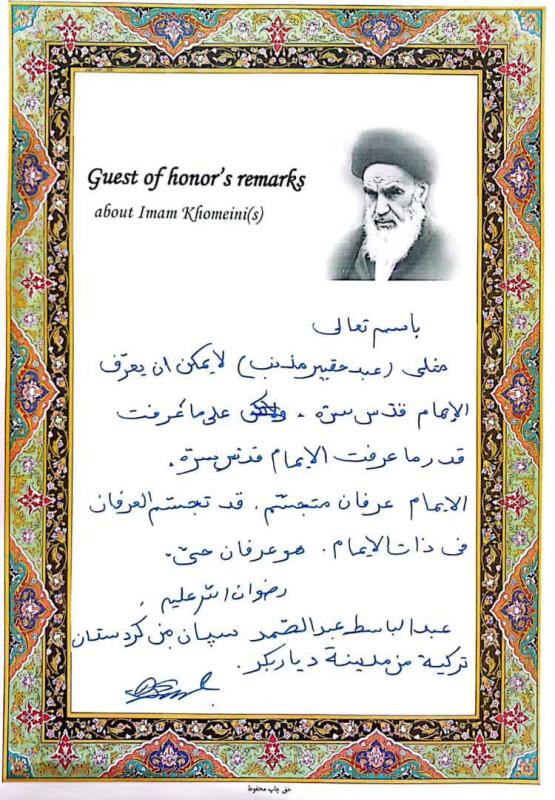 Guest of honor's remarks
about Imam Khomeini(s)
باسم تعالى
مثلي (عبد حقير مذنب) لا يمكن ان يعرّف
الإمام قدّس سرّه . على ما عرفت
قدر ما عرفت الإمام قدّس سرّه .
الإمام عرفان متجسّم . قد تجسّم العرفان
في ذات الإمام . هو عرفان حيّ .
رضوان الله عليه
عبد الباسط عبد الصّمد سپان من كردستان
تركية من مدينة ديار بكر .
حق چاپ محفوظ